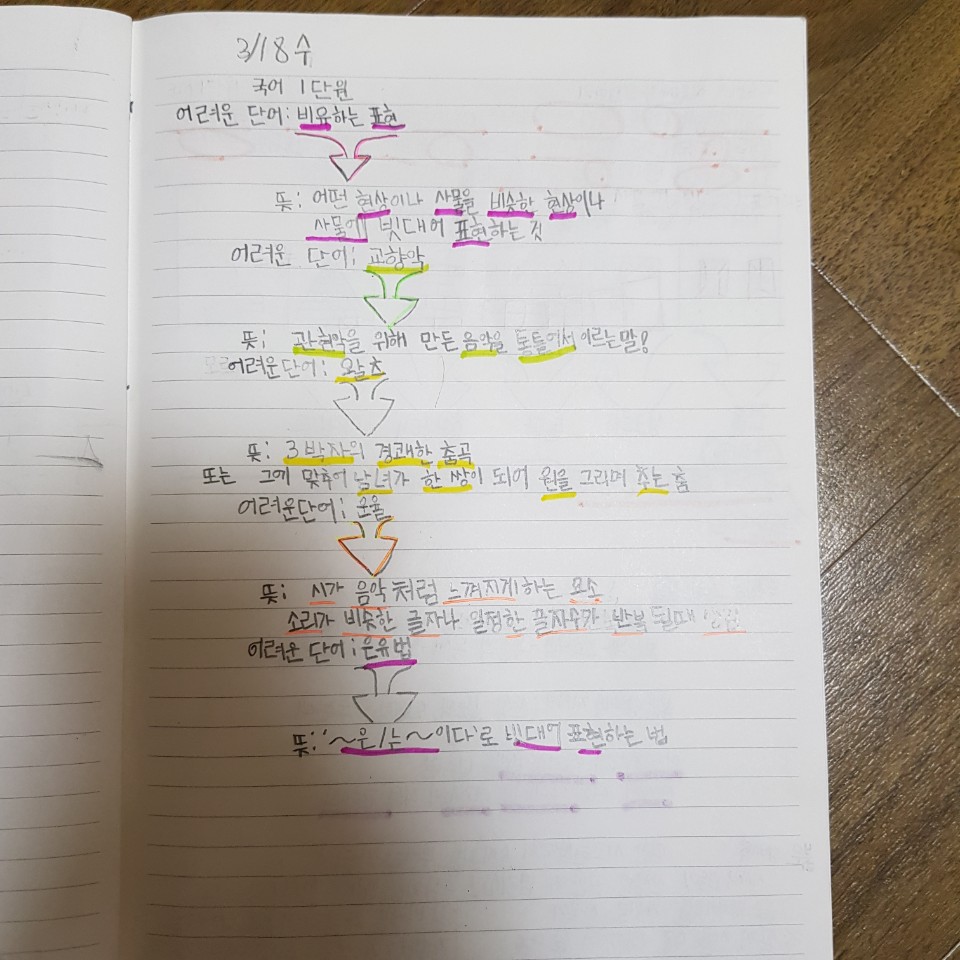 3/18 수
국어 1단원
어려운 단어: 비유하는 표현
뜻: 어떤 현상이나 사물을 비슷한 현상이나
사물에 빗대어 표현하는 것
어려운 단어: 교향악
뜻: 관현악을 위해 만든 음악을 통틀어서 이르는말!
어려운단어: 왈츠
뜻: 3박자의 경쾌한 춤곡
또는 그에 맞추어 남녀가 한 쌍이 되어 원을 그리며 추는 춤
어려운단어: 운율
뜻: 시가 음악처럼 느껴지게 하는 요소
소리가 비슷한 글자나 일정한 글자수가 반복 될때
어려운 단어: 은유법
뜻: '~은/는~이다'로 빗대어 표현하는 법